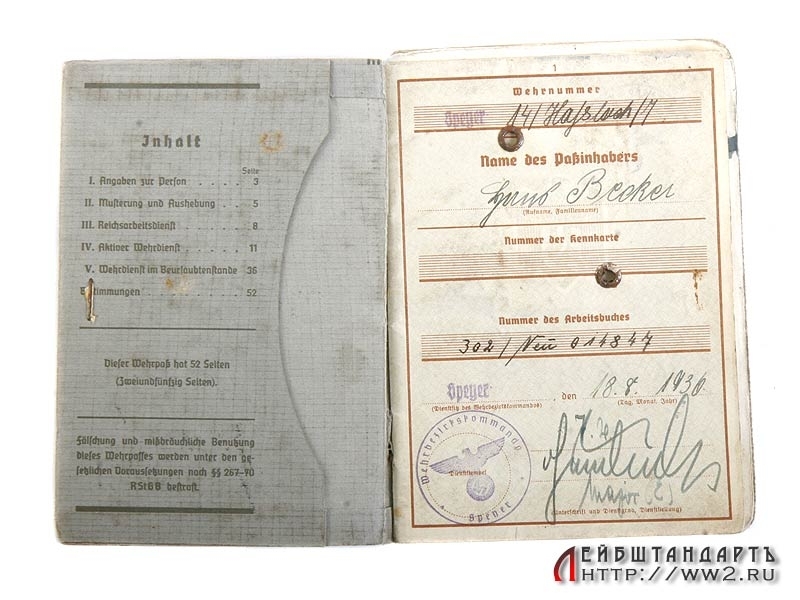 Inhalt
Seite
I. Angaben zur Person . . . . . 3
II. Musterung und Aushebung . . 5
III. Reichsarbeitsdienst . . . . . 8
IV. Aktiver Wehrdienst . . . . . 11
V. Wehrdienst im Beurlaubtenstande 36
Bestimmungen . . . . . . . . 52
Dieser Wehrpaß hat 52 Seiten
(Zweiundfünfzig Seiten).
Fälschung und mißbräuchliche Benutzung
dieses Wehrpasses werden unter den ge-
setzlichen Voraussetzungen nach §§ 267–70
RStGB bestraft.
1
Wehrnummer
Speyer 14/Haßloch/7
Name des Paßinhabers
Hans Becker
(Rufname, Familienname)
Nummer der Kennkarte
Nummer des Arbeitsbuches
302/Neu 014847
Speyer, den 18.8.1936
(Dienstsitz des Wehrbezirkskommandos) (Tag, Monat, Jahr)
Wehrbezirkskommando
Dienststempel
Speyer
Major (E)
(Unterschrift und Dienstgrad, Dienststellung)
ЛЕЙБШТАНДАРТЪ
HTTP://WW2.RU